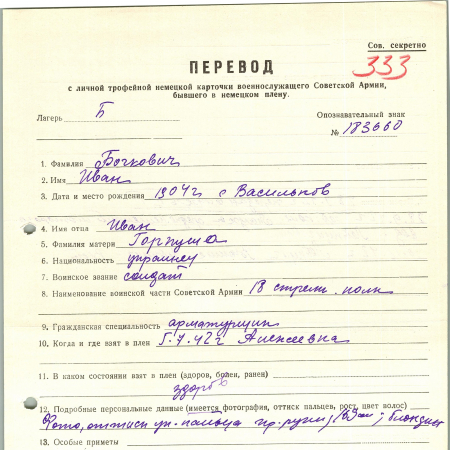 Сов. секретно
333
ПЕРЕВОД
с личной трофейной немецкой карточки военнослужащего Советской Армии,
бывшего в немецком плену.
Лагерь Б
Опознавательный знак
№ 183660
1. Фамилия Бочкович
2. Имя Иван
3. Дата и место рождения 1904 г с Васильков
4. Имя отца Иван
5. Фамилия матери
6. Национальность украинец
7. Воинское звание солдат
8. Наименование воинской части Советской Армии 18 стрелк. полк
9. Гражданская специальность арматурщик
10. Когда и где взят в плен 5.7.42 г Алексеевка
11. В каком состоянии взят в плен (здоров, болен, ранен)
здоров
12. Подробные персональные данные (имеется фотография, оттиск пальцев, рост, цвет волос)
Фото, оттиск ук. пальца пр. руки, блондин
13. Особые приметы